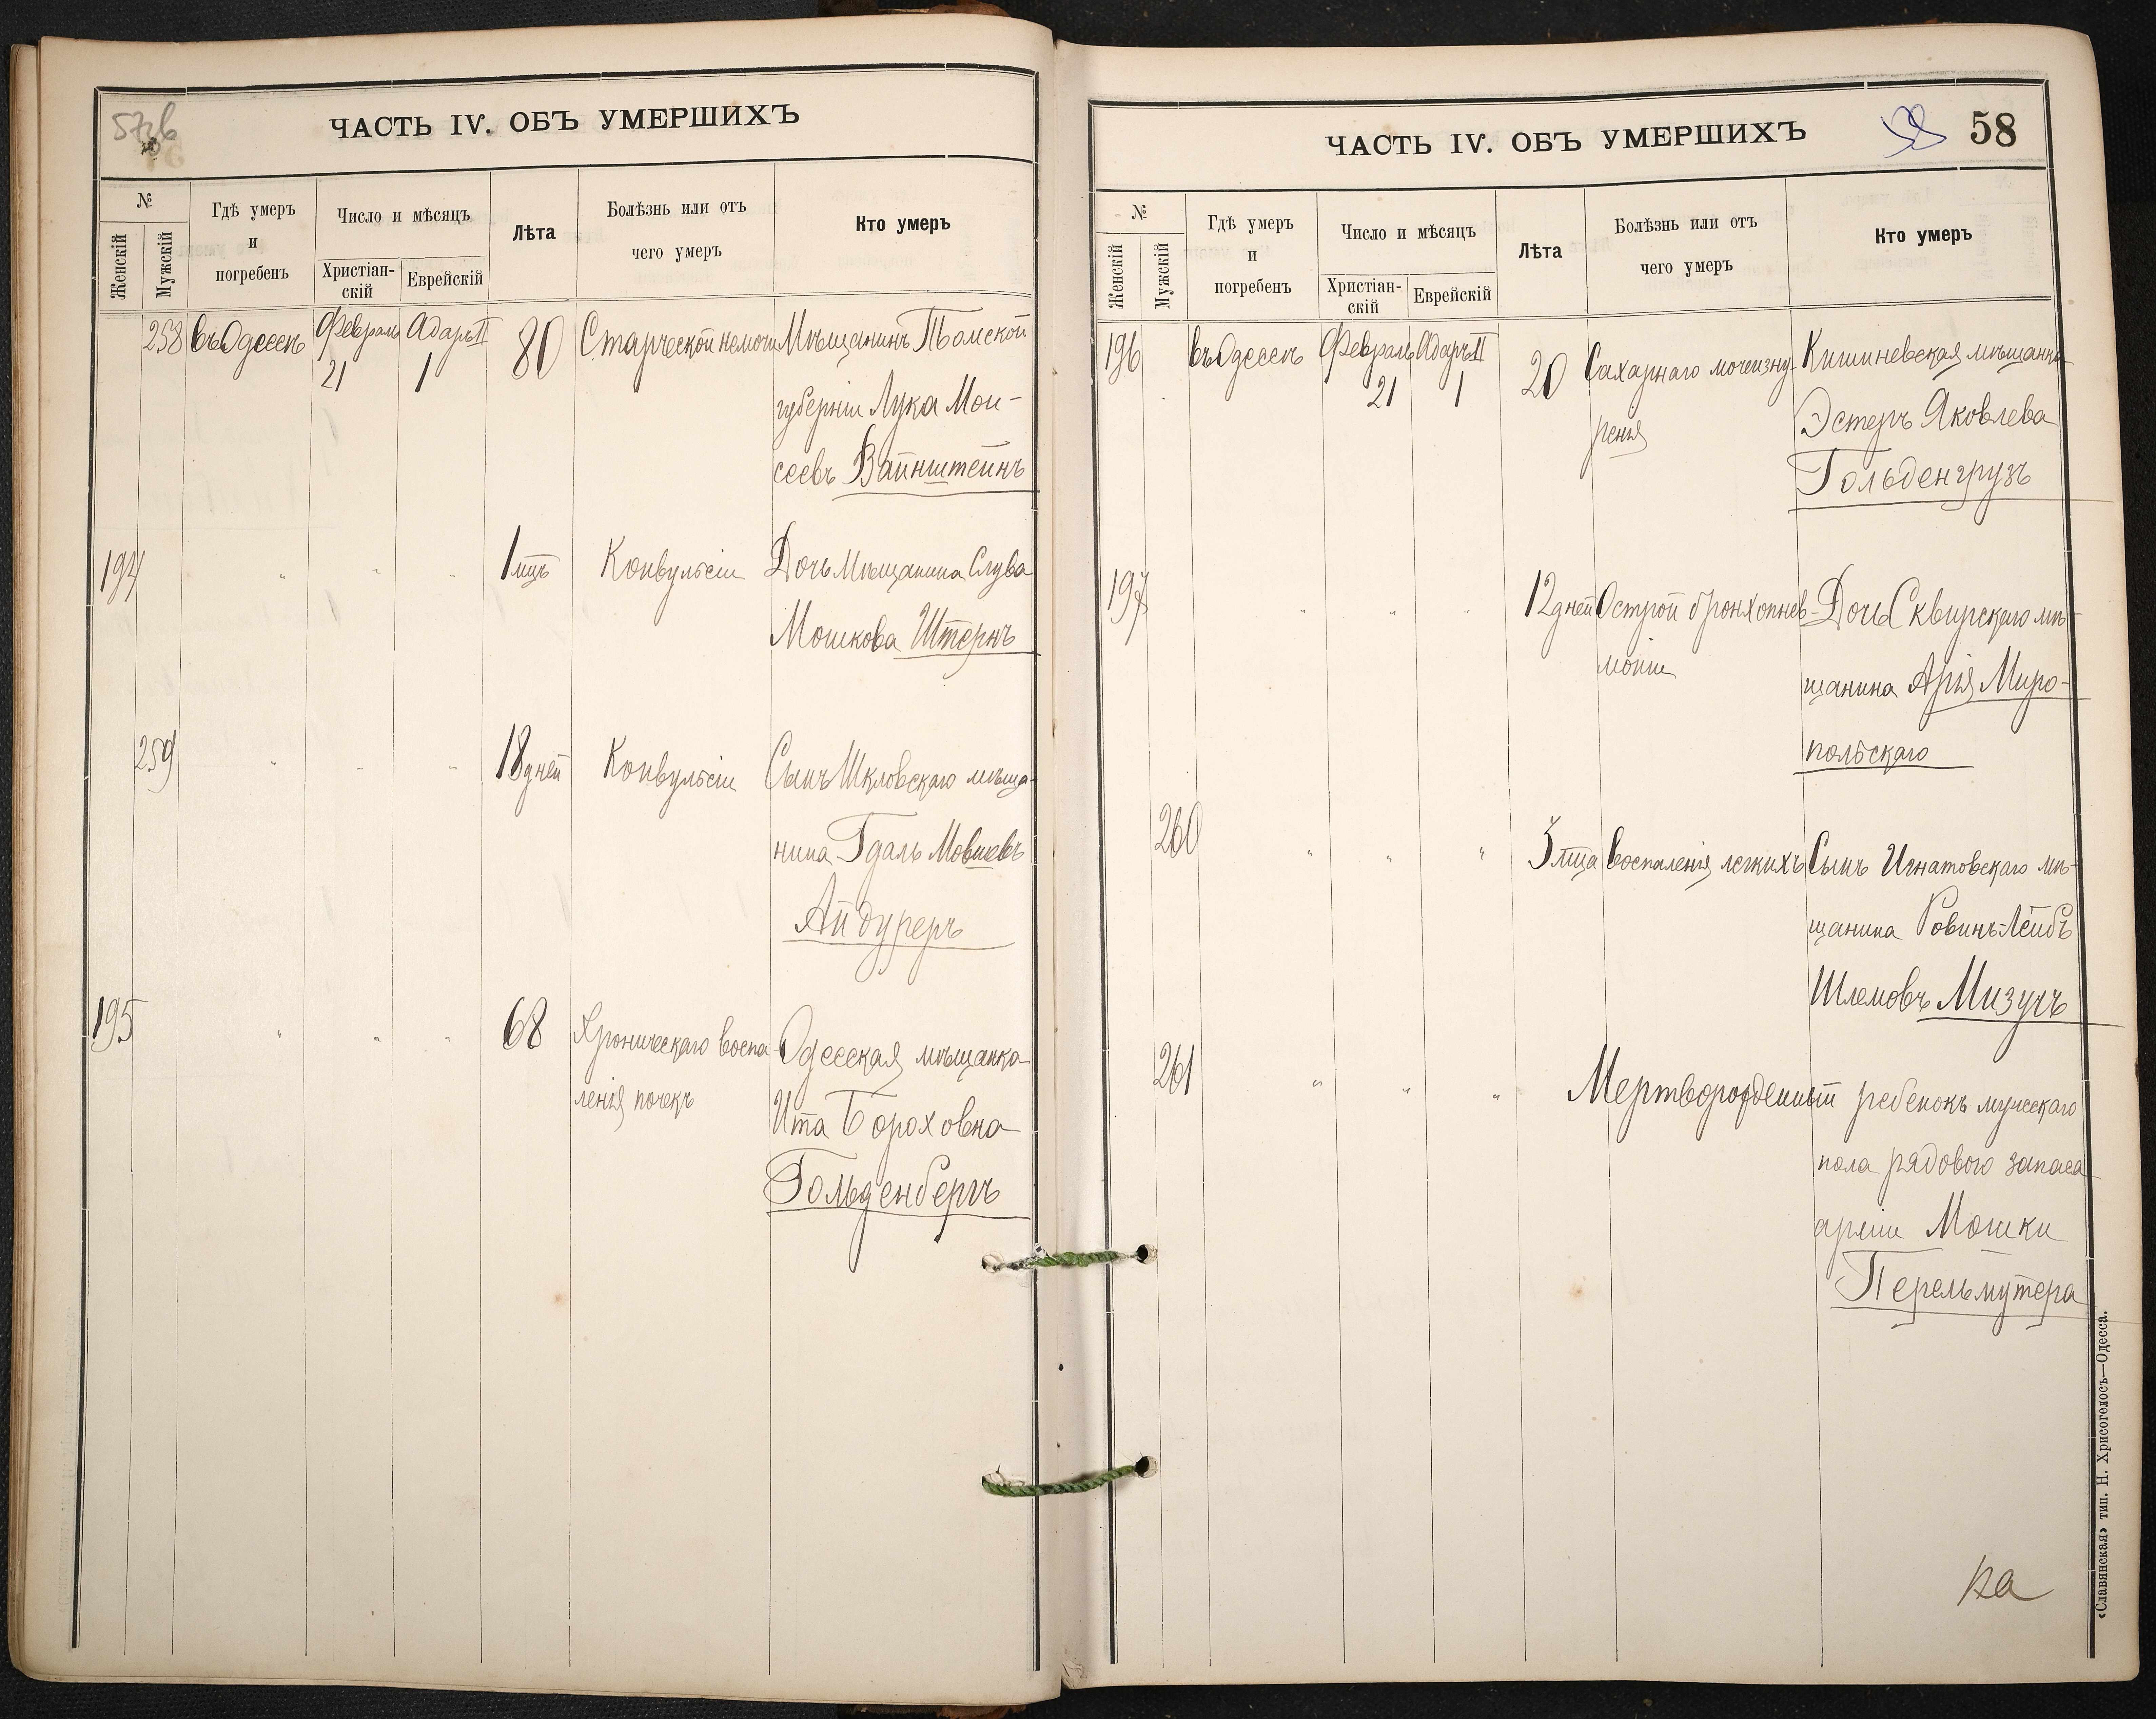 57 об
ЧАСТЬ IV. ОБЪ УМЕРШИХЪ
№
Женскій
Мужскій
Гдѣ умеръ
и
погребенъ
Число и мѣсяцъ
Христіан-
скій
Еврейскій
Лѣта
Болѣзнь или отъ
чего умеръ
Кто умеръ
258 въ Одессѣ Февраль Адаръ II 80 Старческой немочи Мѣщанинъ Томской
21 1
губерніи Лука Мои-
сеевъ Вайнштейнъ
194 " " " 1 мцъ Конвульсіи Дочь мѣщанина Слува
Мошкова Штернъ
259 " " " 18 дней Конвульсіи Сынъ Шкловскаго мѣща-
нина Гдаль Мовшевъ
Айдуреръ
195 " " " 68 Хроническаго воспа- Одесская мѣщанка
ленія почекъ Ита Бороховна
Гольденбергъ
ЧАСТЬ IV. ОБЪ УМЕРШИХЪ 58
№
Женскій
Мужскій
Гдѣ умеръ
и
погребенъ
Число и мѣсяцъ
Христіан-
скій
Еврейскій
Лѣта
Болѣзнь или отъ
чего умеръ
Кто умеръ
196 въ Одессѣ Февраль Адаръ II 20 Сахарнаго мочеизну- Кишиневская мѣщанка
21 1
ренія Эстеръ Яковлева
Гольденгрузъ
197 " " " 12 дней Острой бронхопнев- Дочь Сквирскаго мѣ-
моніи щанина Арія Миро-
польскаго
260 " " " 3 мца Воспаленія легкихъ Сынъ Игнатовскаго мѣ-
щанина Ровинъ-Лейбъ
Шлемовъ Мизучъ
261 " " " Мертворожденный ребенокъ мужскаго
пола рядового запаса
арміи Мошки
Перельмутера
«Славянская» тип. Н. Хрисогелосъ—Одесса.